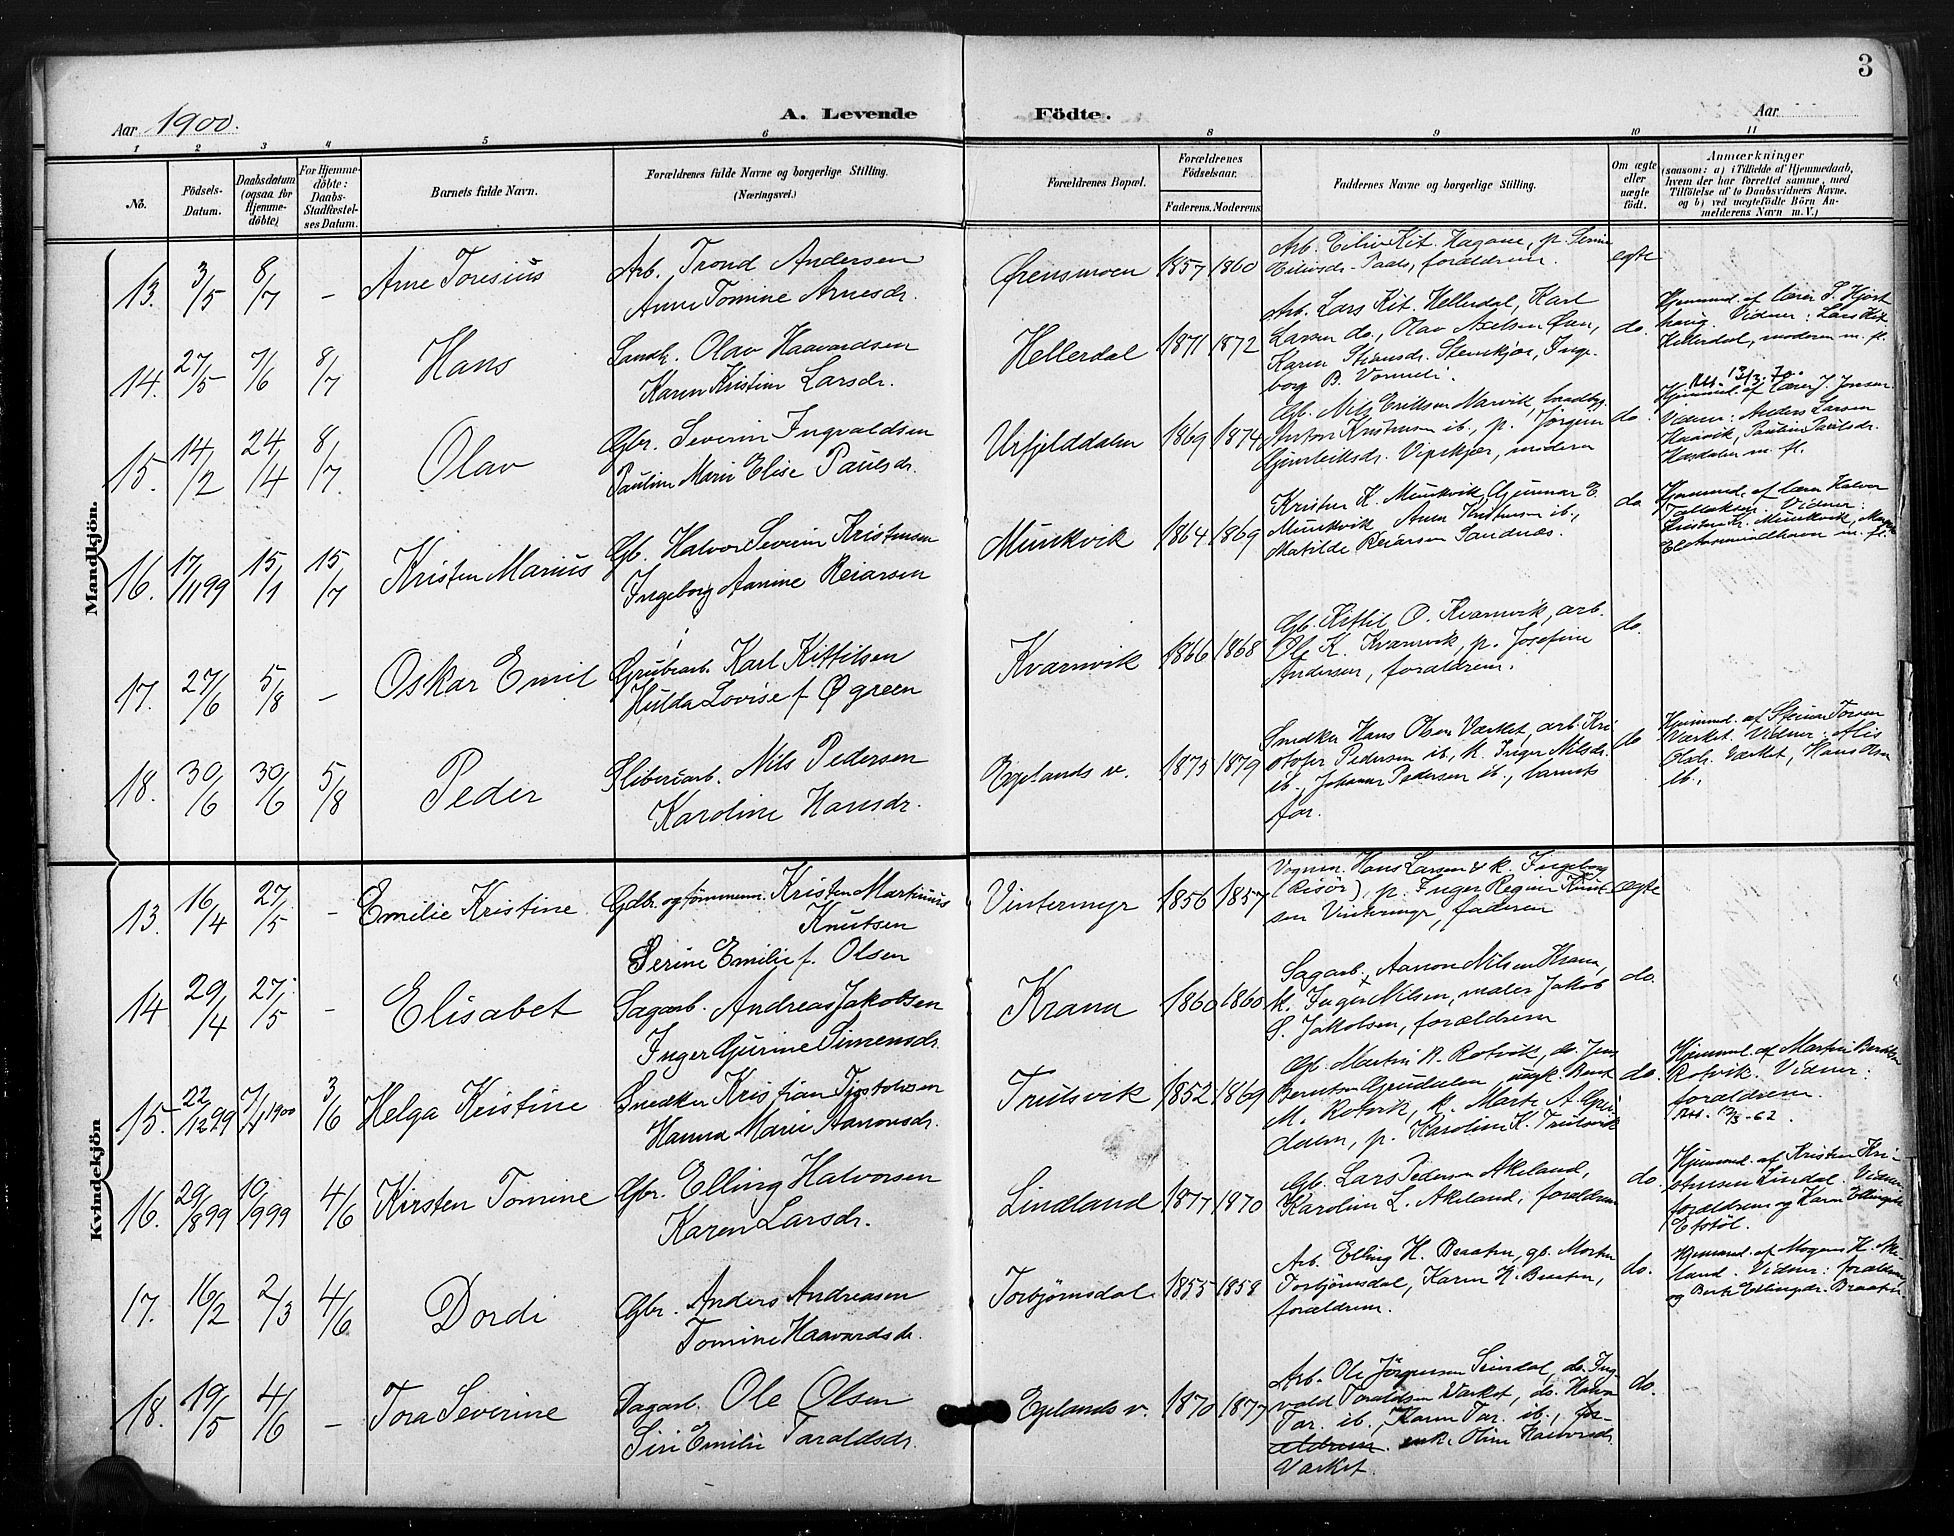 3
Aar 1900.
A. Levende Födte.
Aar
1 2 3 4 5 6 8 9 10 11
No.
Födsels-Datum.
Daabsdatum (ogsaa for Hjemme-döbte)
For Hjemme-döbte: Daabs-Stadfæstel-ses Datum.
Barnets fulde Navn.
Forældrenes fulde Navne og borgerlige Stilling.
(Næringsvei.)
Forældrenes Bopæl.
Forældrenes Födselsaar.
Faderens. Moderens.
Faddernes Navne og borgerlige Stilling.
Om ægte eller uægte födt.
Anmærkninger
(saasom: a) i Tilfælde af Hjemmedaab,
hvem der har forrettet samme, med
Tilföielse af to Daabsvidners Navne.
og b) ved uægtefödte Börn An-
melderens Navn m. V.)
Mandkjön.
13. 3/5 8/7 – Arne Toresius
Arb. Trond Andersen
Anne Tomine Arnesdr.
1857 1860
forældrene.
egte
14. 27/5 7/6 8/7 Hans
Sandk. Olav Haavardsen
Karen Kristine Larsdr.
Hellerdal 1871 1872
Arb. Lars Kit. Hellerdal, Karl
Larsen do., Olav Axelsen
borg B.
do.
Hjemmed. af lærer S. Hjort
haug. Vidner: Lars Kit
Hellerdal, moderen m. fl.
Att. 13/3.-70.
15. 14/2 24/4 8/7 Olav
Gbr. Severin Ingvaldsen
Pauline Marie Elise Paulsdr.
Urfjelddalen 1869 1874
Gb. Nils Eriksen Narvik,
Anton Kristensen ib., p. Jørgine
moderen
do.
Hjemmed. af lærer J. Jensen
Vidner: Anders Larsen
Haavik, Pauline Paulsdr.
m. fl.
16. 17/11 99 15/1 15/7 Kristen Marius
Gb. Halvor Severin Kristensen
Ingeborg Aanine Reiarsen
Munkvik 1864 1869
Kristen K. Munkvik, Gunnar E.
Munkvik, Anne Kristensen ib.,
Matilde Reiarsen Sandnæs.
do
Hjemmed. af lærer Halvor
Tallaksen. Vidner:
Kristen Kr. Munkvik,
m. fl.
17. 27/6 5/8 – Oskar Emil
Grubearb. Karl Kittilsen
Hulda Lovise f. Øgreen
Kvarnvik 1866 1868
Gb. Kittil O. Kvarnvik, arb.
Ole K. Kvarnvik, p. Josefine
Andersen, forældrene.
do.
18. 30/6 30/6 5/8 Peder
Sliberiarb. Nils Pedersen
Karoline Hansdr.
Egelands v. 1875 1879
Snedker Hans Olsen Værket, arb. Kri
stofer Pedersen ib., k. Inger Nilsdr.
ib., Johanne Pedersen ib., barnets
far.
do
Værket. Vidner:
Værket, Hans Olsen
ib.
Kvindekjön
13. 16/4 27/5 – Emilie Kristine
Gdbr. og tømmerm. Kristen Martinius
Knutsen
Serine Emilie f. Olsen
Vintermyr 1856 1857
Vognm. Hans Larsen & k. Ingeborg
(Risør), p. Inger Regine Knut
sen Vintermyr, faderen
egte
14 29/4 27/5 – Elisabet
Sagarb. Andreas Jakobsen
Inger Gurine Simensdr.
Krana 1860 1860
Sagarb. Aanon Nilsen Krana,
k. Inger Nilsen, maler Jakob
S. Jakobsen, forældrene
do.
15. 22/12 99 7/1 1900 3/6 Helga Kristine
Snedker Kristian Tjostolvsen
Hanna Marie Aanonsdr.
Trulsvik 1852 1869
Gb. Martin B. Rotvik, do. Jens
Berntsen Grudalen ungk. Bernt
M. Rotvik, k. Marte A. Gru
dalen, p. Karoline K. Trulsvik
do.
Hjemmed. af Martin Berntsen
Rotvik. Vidner:
forældrene.
16. 29/8 99 10/9 99 4/6 Kirsten Tomine
Gbr. Elling Halvorsen
Karen Larsdr.
Lindland 1877 1870
Gb. Lars Pedersen Akeland,
Karoline L. Akeland, forældrene
do.
Hjemmed. af Kristen Kri-
stensen Lindal. Vidner
forældrene og Karen Ellingsdr.
17. 16/2 2/3 4/6 Dordi
Gbr. Anders Andreasen
Tomine Haavardsdr.
Torbjørnsdal 1855 1858
Arb. Elling H. Braaten, gb. Morten
Torbjørnsdal, Karen H. Braaten,
forældrene.
do.
Hjemmed. af Mogens K. Ake
land. Vidner: forældrene
og Berte Ellingsdr. Braaten
18. 19/5 4/6 – Tora Severine
Dagarb. Ole Olsen
Siri Emilie Taraldsdr.
Egelands v. 1870 1877
Arb. Ole Jørgensen Seindal, do. Ing
vald Taraldsen Værket, do. Hans
Tar. ib., Karen Tar. ib., for-
ældrene. enke Oline Halvorsdr.
Værket
do.